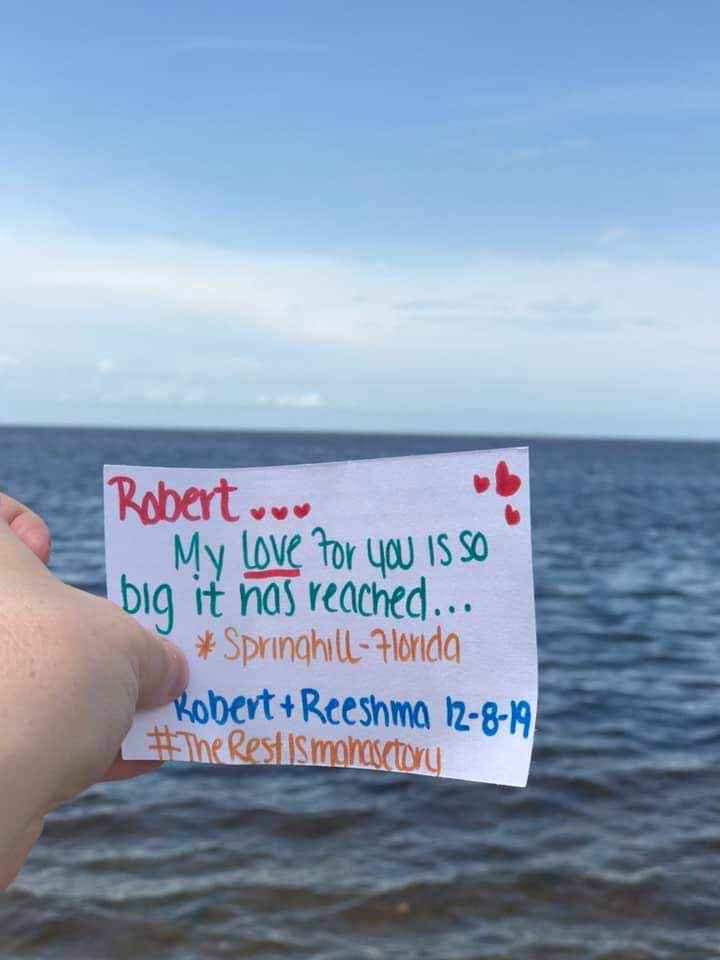 Robert...
My Love For you is so
big it has reached...
* Springhill-Florida
Robert + Reeshma 12-8-19
#TheRestIsmahasetory